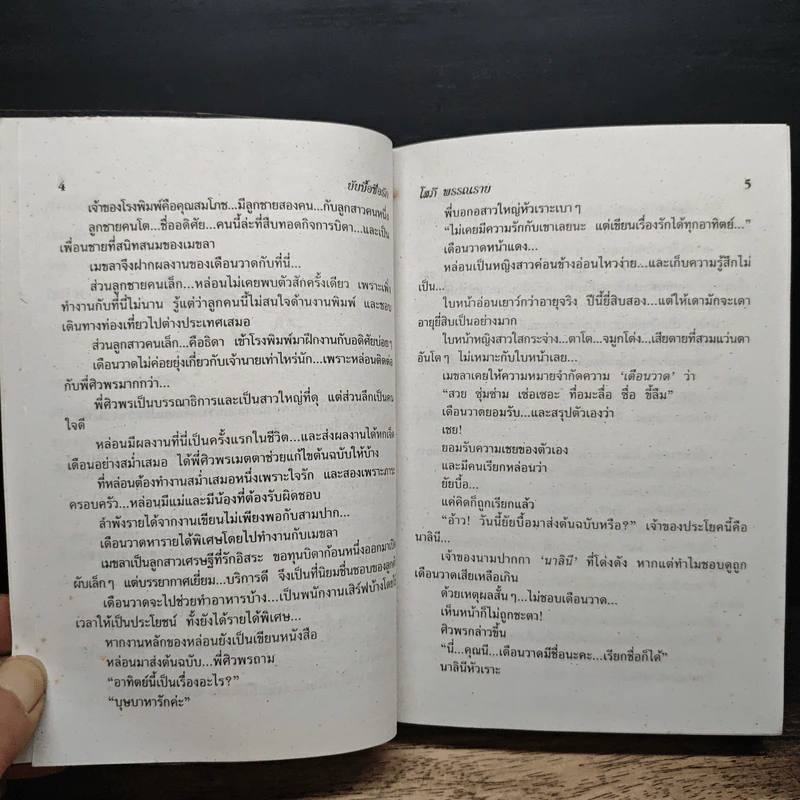 4
ยัยบื้อซื่อรัก
เจ้าของโรงพิมพ์คือคุณสมโภช...มีลูกชายสองคน...กับลูกสาวคนหนึ่ง
ลูกชายคนโต...ชื่ออดิศัย...คนนี้ล่ะที่สืบทอดกิจการบิดา...และเป็น
เพื่อนชายที่สนิทสนมของเมขลา
เมขลาจึงฝากผลงานของเดือนวาดกับที่นี่...
ส่วนลูกชายคนเล็ก...หล่อนไม่เคยพบตัวสักครั้งเดียว เพราะเพิ่ง
ทำงานกับที่นี่ไม่นาน รู้แต่ว่าลูกคนนี้ไม่สนใจด้านงานพิมพ์ และชอบ
เดินทางท่องเที่ยวไปต่างประเทศเสมอ
ส่วนลูกสาวคนเล็ก...คือธิดา เข้าโรงพิมพ์มาฝึกงานกับอดิศัยบ่อยๆ
เดือนวาดไม่ค่อยยุ่งเกี่ยวกับเจ้านายเท่าไหร่นัก...เพราะหล่อนติดต่อ
กับพี่ศิวพรมากกว่า...
พี่ศิวพรเป็นบรรณาธิการและเป็นสาวใหญ่ที่ดุ แต่ส่วนลึกเป็นคน
ใจดี
หล่อนมีผลงานที่นี่เป็นครั้งแรกในชีวิต...และส่งผลงานได้หกเจ็ด
เดือนอย่างสม่ำเสมอ ได้พี่ศิวพรเมตตาช่วยแก้ไขต้นฉบับให้บ้าง
ที่หล่อนต้องทำงานสม่ำเสมอหนึ่งเพราะใจรัก และสองเพราะภาระ
ครอบครัว...หล่อนมีแม่และมีน้องที่ต้องรับผิดชอบ
ลำพังรายได้จากงานเขียนไม่เพียงพอกับสามปาก...
เดือนวาดหารายได้พิเศษโดยไปทำงานกับเมขลา
เมขลาเป็นลูกสาวเศรษฐีที่รักอิสระ ขอทุนบิดาก้อนหนึ่งออกมาเปิด
ผับเล็กๆ แต่บรรยากาศเยี่ยม...บริการดี จึงเป็นที่นิยมชื่นชอบของลูกค้า
เดือนวาดจะไปช่วยทำอาหารบ้าง...เป็นพนักงานเสิร์ฟบ้างโดยใช้
เวลาให้เป็นประโยชน์ ทั้งยังได้รายได้พิเศษ...
หากงานหลักของหล่อนยังเป็นเขียนหนังสือ
หล่อนมาส่งต้นฉบับ...พี่ศิวพรถาม
“อาทิตย์นี้เป็นเรื่องอะไร?”
“บุษบาหารักค่ะ”
โสภี พรรณราย
5
พี่บอกอสาวใหญ่หัวเราะเบาๆ
“ไม่เคยมีความรักกับเขาเลยนะ แต่เขียนเรื่องรักได้ทุกอาทิตย์...”
เดือนวาดหน้าแดง...
หล่อนเป็นหญิงสาวค่อนข้างอ่อนไหวง่าย...และเก็บความรู้สึกไม่
เป็น...
ใบหน้าอ่อนเยาว์กว่าอายุจริง ปีนี้ยี่สิบสอง...แต่ให้เดามักจะเดา
อายุยี่สิบเป็นอย่างมาก
ใบหน้าหญิงสาวใสกระจ่าง...ตาโต...จมูกโด่ง...เสียดายที่สวมแว่นตา
อันโตๆ ไม่เหมาะกับใบหน้าเลย...
เมขลาเคยให้ความหมายจำกัดความ ‘เดือนวาด’ ว่า
“สวย ซุ่มซ่าม เซ่อเซอะ ทื่อมะลื่อ ซื่อ ขี้ลืม”
เดือนวาดยอมรับ...และสรุปตัวเองว่า
เชย!
ยอมรับความเชยของตัวเอง
และมีคนเรียกหล่อนว่า
ยัยบื้อ...
แค่คิดก็ถูกเรียกแล้ว
“อ้าว! วันนี้ยัยบื้อมาส่งต้นฉบับหรือ?” เจ้าของประโยคนี้คือ
นาลินี...
เจ้าของนามปากกา ‘นาลินี’ ที่โด่งดัง หากแต่ทำไมชอบดูถูก
เดือนวาดเสียเหลือเกิน
ด้วยเหตุผลสั้นๆ...ไม่ชอบเดือนวาด...
เห็นหน้าก็ไม่ถูกชะตา!
ศิวพรกล่าวขึ้น
“นี่...คุณนี...เดือนวาดมีชื่อนะคะ...เรียกชื่อก็ได้”
นาลินีหัวเราะ